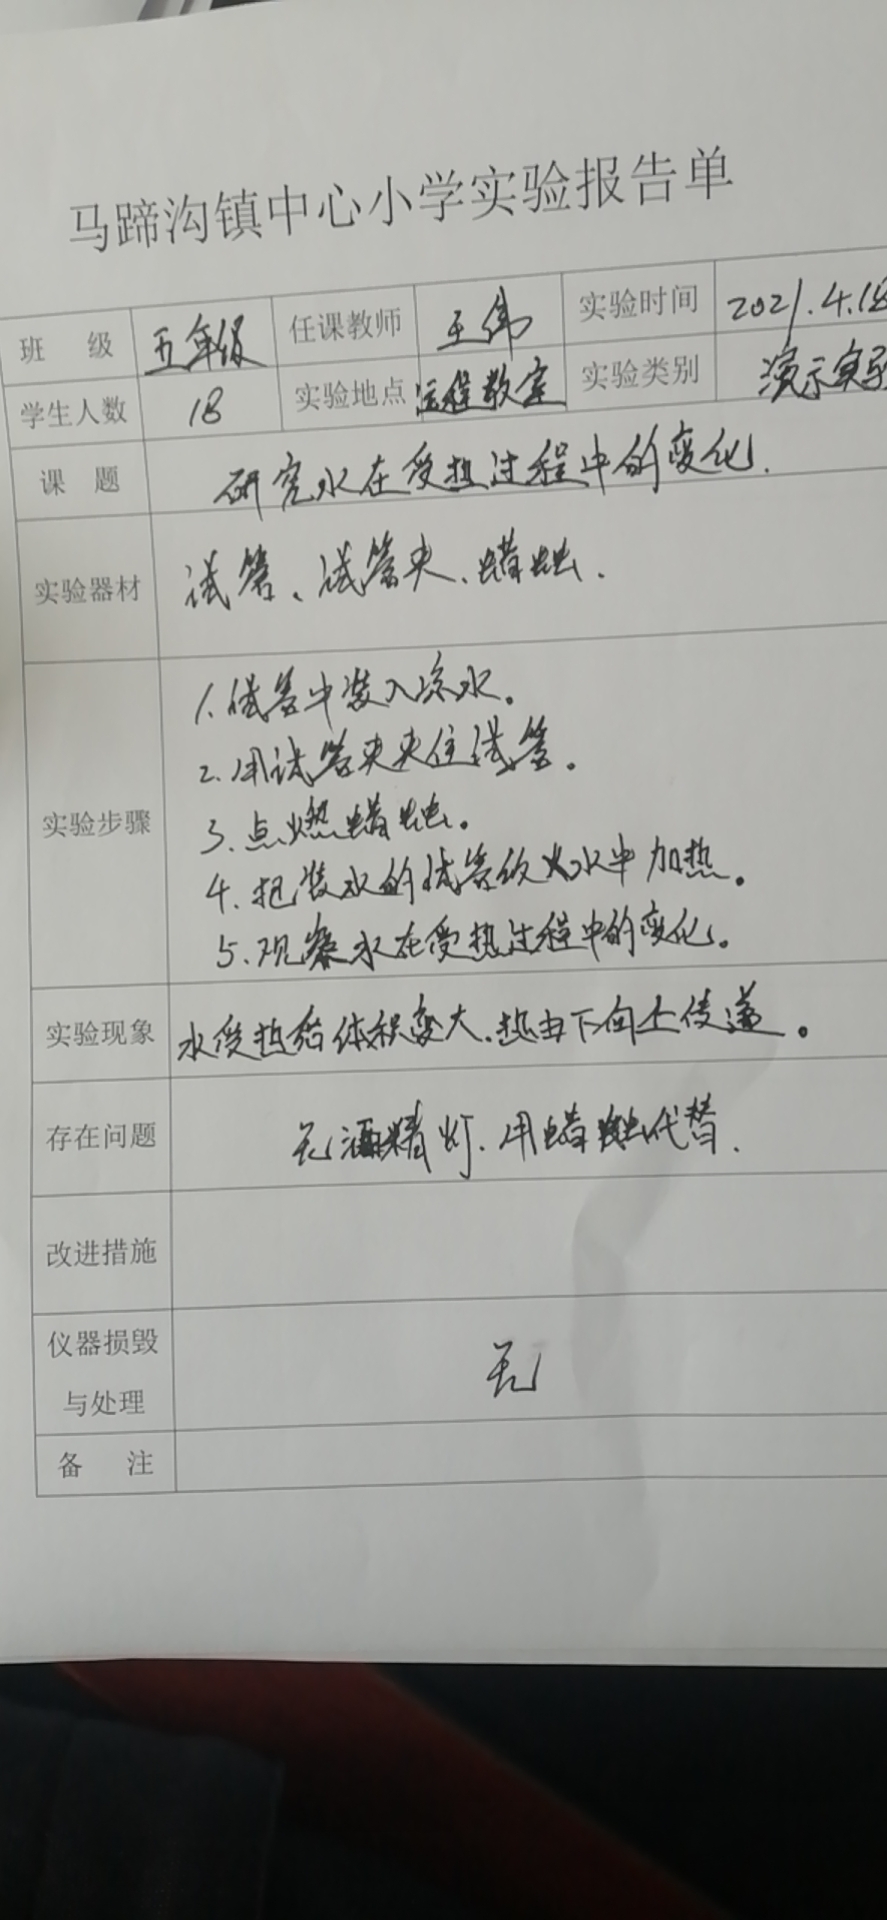 马蹄沟镇中心小学实验报告单
班 级 五年级 任课教师 王伟 实验时间 2021.4.18
学生人数 18 实验地点 远程教室 实验类别 演示实验
课 题 研究水在受热过程中的变化.
实验器材 试管、试管夹、蜡烛.
实验步骤
1.试管中装入凉水。
2.用试管夹夹住试管。
3.点燃蜡烛。
4.把装水的试管放火水中加热。
5.观察水在受热过程中的变化。
实验现象 水受热后体积变大、热由下向上传递。
存在问题 无酒精灯、用蜡烛代替.
改进措施
仪器损毁
与处理 无
备 注